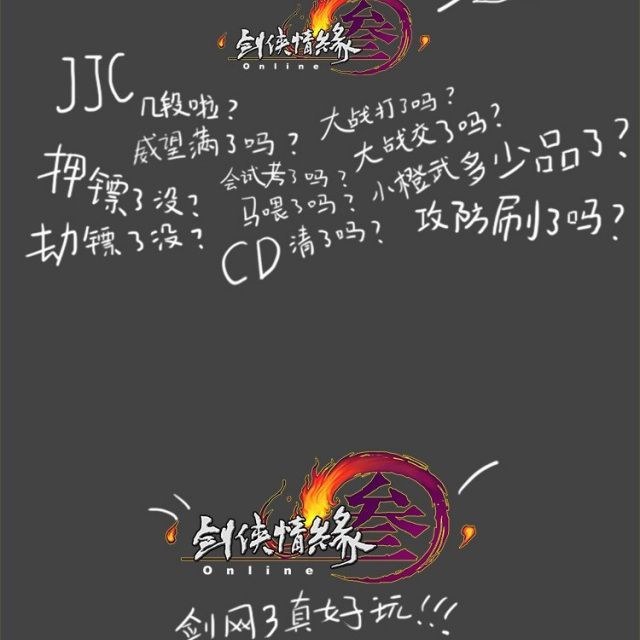 剑侠情緣叁
Online
JJC几段啦?
大战打了吗?
威望满了吗?
大战交了吗?
押镖了没?
会试考了吗?
小橙武多少品了?
马喂了吗?
劫镖了没?
CD清了吗?
攻防刷了吗?
剑侠情緣叁
Online
剑网3真好玩!!!